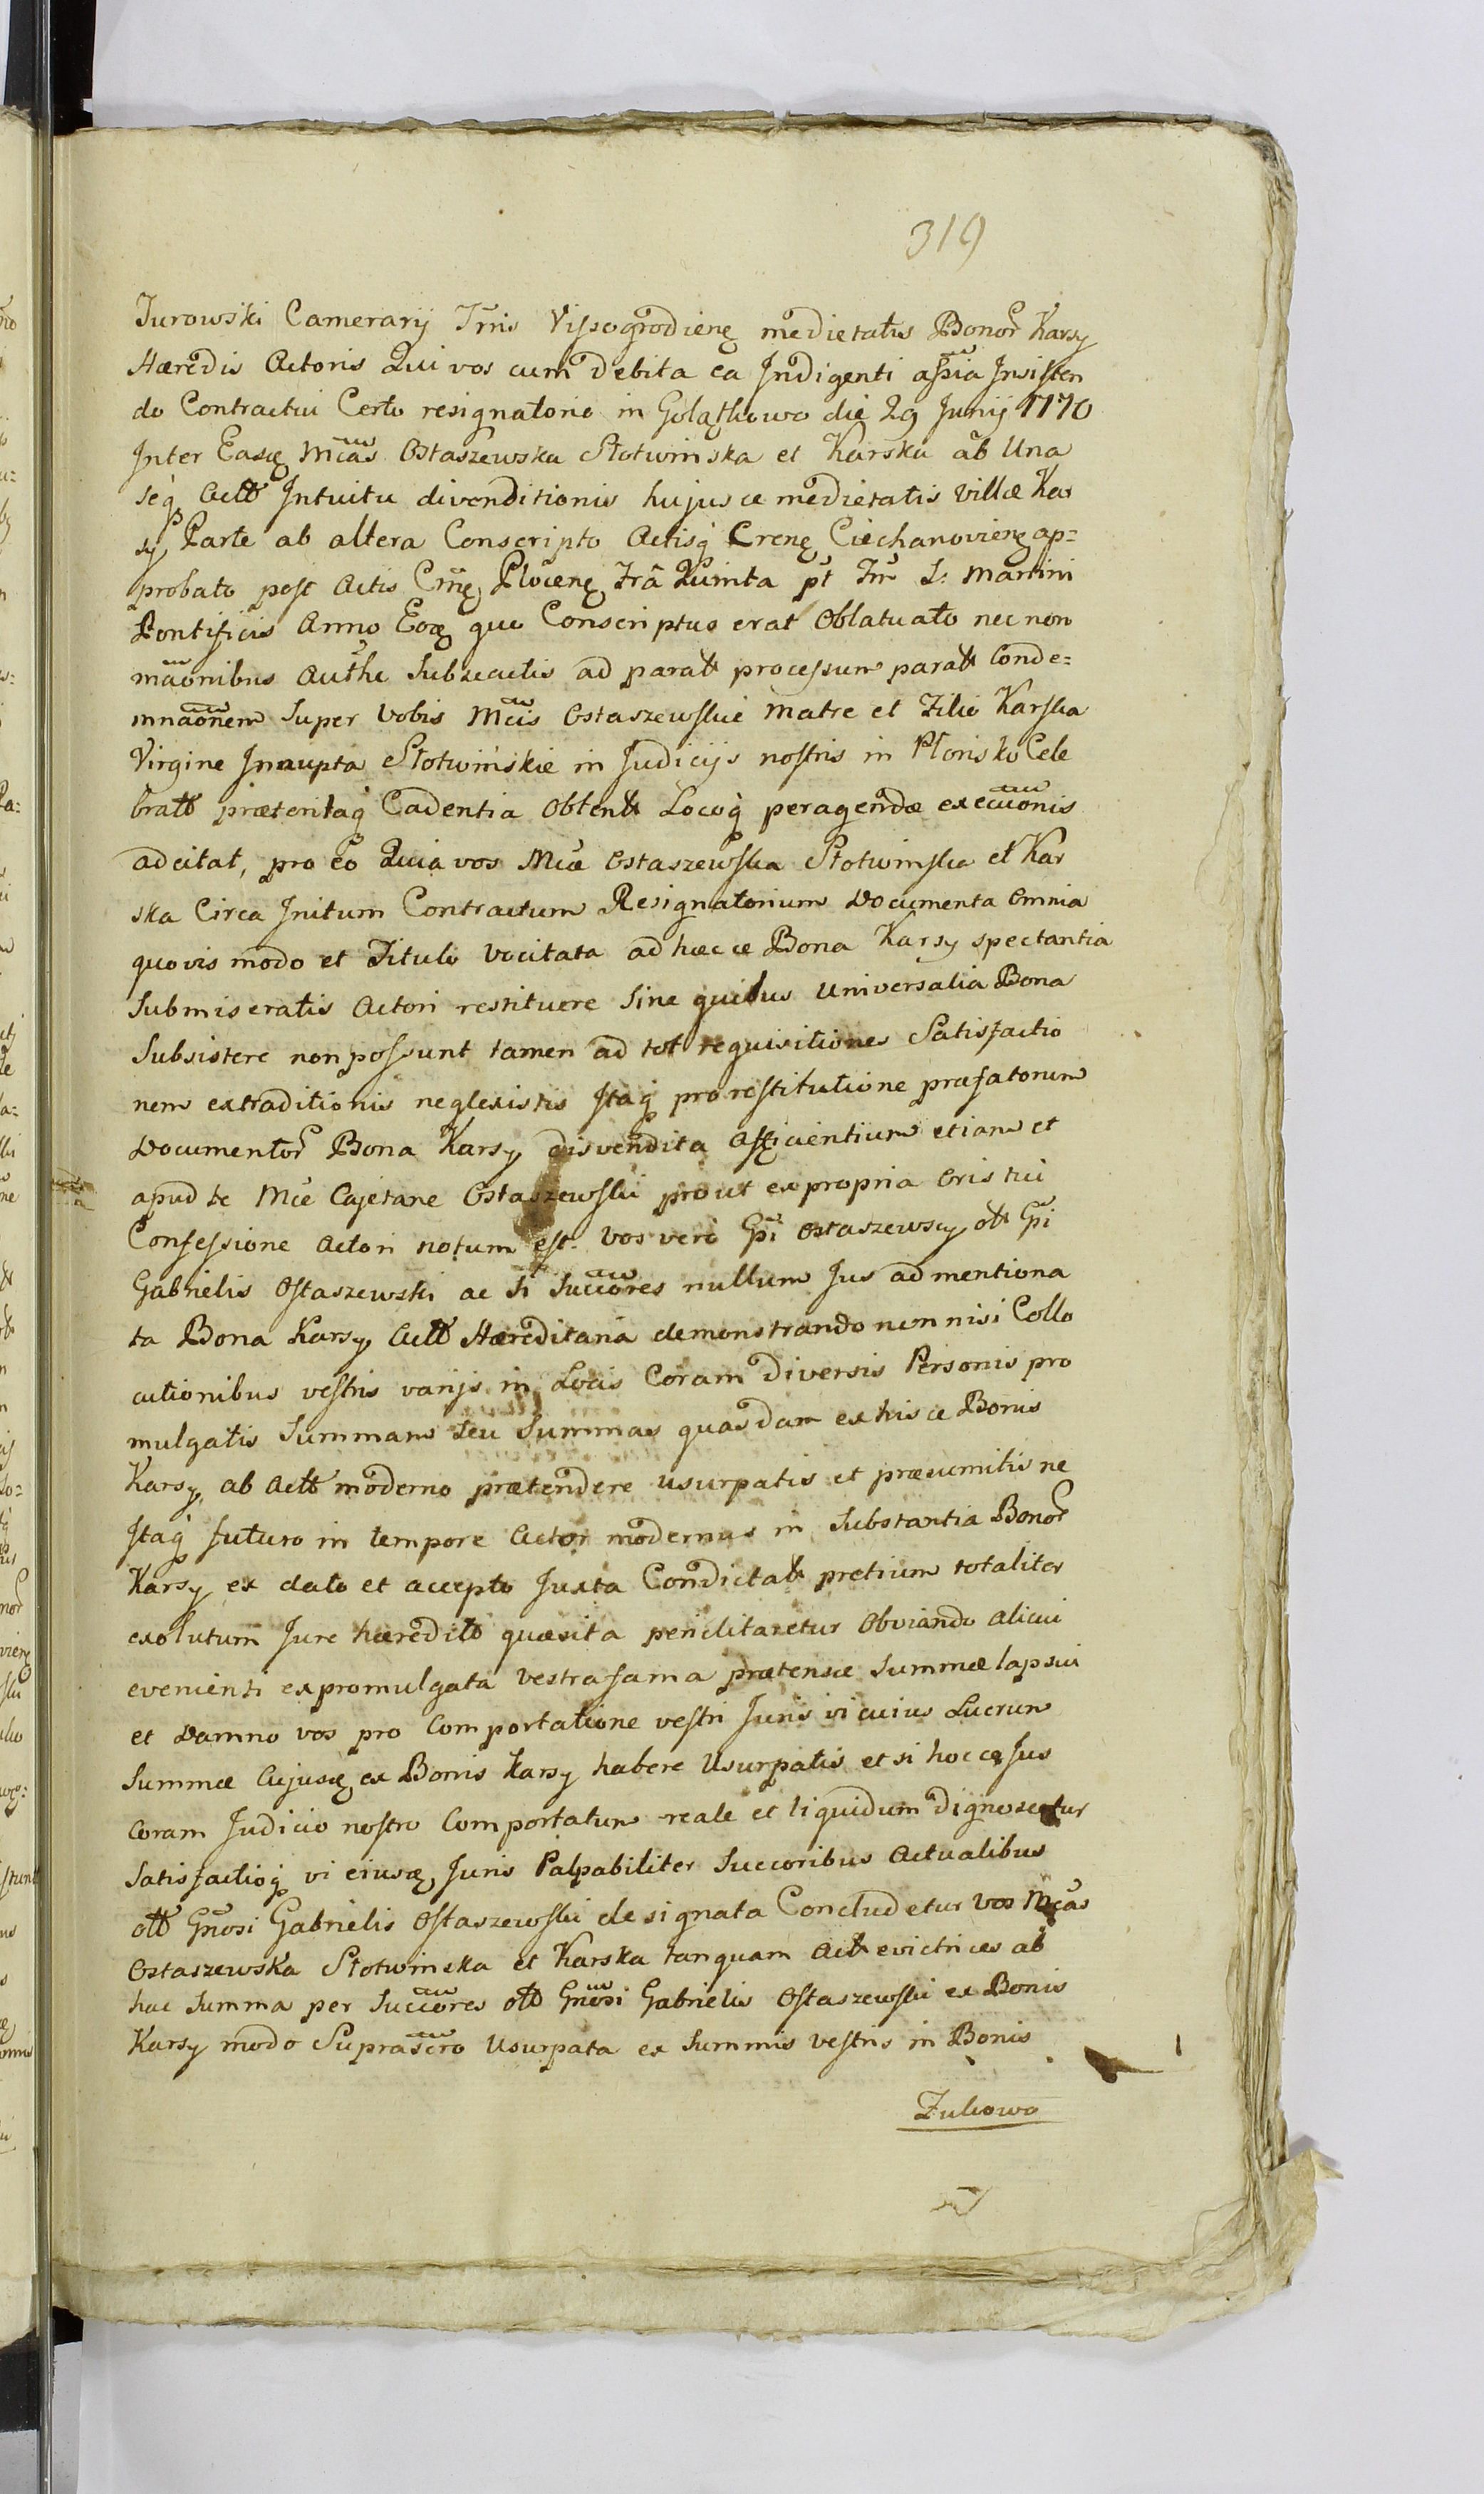 319
Jurowski Camerarij Trris Vissogrodienę medietatis Bonor Karsy
Hæredis Actoris Qui vos cum debita ea Jndigenti assia Jnsisten
do Contractui Certo resignatorio in Golątkowo die 29 Junij 1770
Jnter Easę Mcas Ostaszewska Słotwinska et Karska ab Una
seq Actt Jntuitu divenditionis hujusce medietatis Villæ Kar
sy Parte ab altera Conscripto Actisq Crenę Ciechanovienę ap=
probato post Actis Crnę Plocenę Fra Quinta pt Fm S: Martini
Pontificis Anno Eoę quo Conscriptus erat Oblatuato nec non
maonibus Authe Subsecutis ad paratt processum paratt Conde=
mnaonem Super Vobis Mcis Ostaszewskie Matre et Filio Karska
Virgine Jnnupta Słotwińskie in Judicijs nostris in Płonisko Cele
bratt præteritaq Cadentia Obtentt Locoq peragendæ execuonis
adcitat, pro eo Quia vos Mcæ Ostaszewska Słotwinska et Kar
ska Circa Jnitum Contractum Resignatorium Documenta Omnia
quovis modo et Titulo Vocitata ad hæcce Bona Karsy spectantia
Submiseratis Actori restituere Sine quibus Universalia Bona
Subsistere non possunt tamen ad tot requisitiones Satisfactio
nem extraditionis neglexistis Jtaq pro restitutione præfatorum
Documentor Bona Karsy disvendita afficientium etiam et
apud te Mce Cajetane Ostaszewski prout ex propria Oris tui
Confessione Actori notum est. Vos vero Gsi Ostaszewscy ott Gsi
Gabrielis Ostaszewski ac si Succores nullum Jus ad mentiona
ta Bona Karsy Actt Hæreditaria demonstrando nonnisi Collo
cutionibus vestris varijs in Locis Coram diversis Personis pro
mulgatis Summam seu Summas quasdam ex hisce Bonis
Karsy ab Actt moderno prætendere usurpatis et præsumitis ne
Jtaq futuro in tempore Actor modernus in Substantia Bonor
Karsy ex dato et accepto Juxta Condictatt pretium totaliter
exolutum Jure hæreditt quæsita periclitaretur Obviando alicui
evenienti ex promulgata vestra fama prætensæ Summæ lapsui
et Damno vos pro Comportatione vestri Juris vi cuius Lucrum
Summæ Cujusę ex Bonis Karsy habere Usurpatis et si hocce Jus
Coram Judicio nostro Comportatum reale et liquidum dignoscetur
Satisfactioq vi eiusę Juris Palpabiliter Succoribus Actualibus
ott Gnosi Gabrielis Ostaszewski designata Concludetur Vos Mcas
Ostaszewska Słotwinska et Karska tanquam Actt evictrices ab
hac Summa per Succores ott Gnosi Gabrielis Ostaszewski ex Bonis
Karsy modo Suprascro Usurpata ex Summis vestris in Bonis
Zukowo